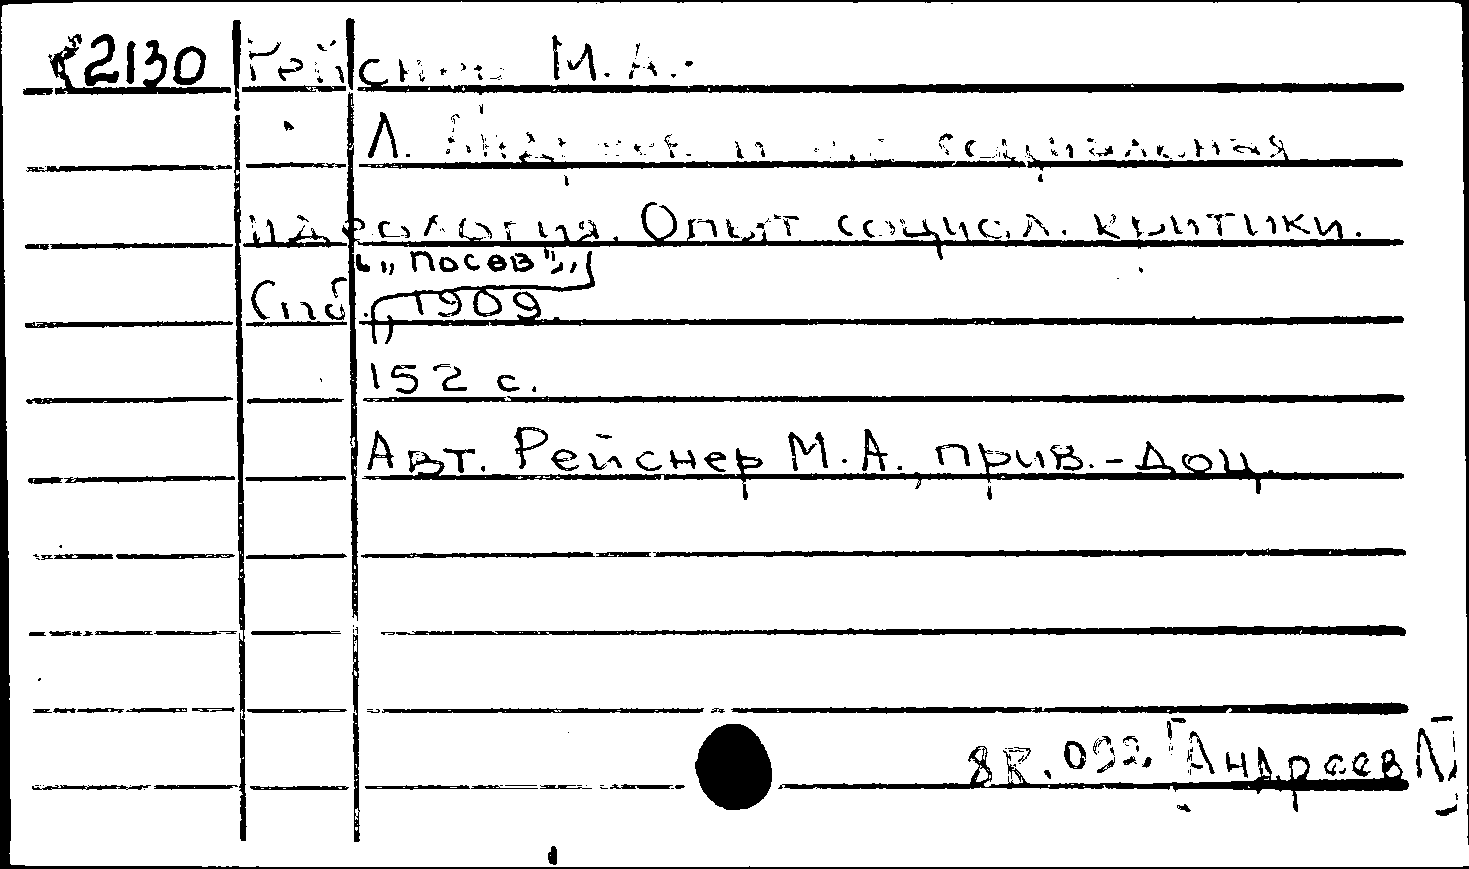 2130 Рейснер М.А.
Л. Андреев и его социальная
идеология. Опыт социол. критики.
„Посев",
Спб., 1909.
152 с.
Авт. Рейснер М.А., прив.-доц.
8R.092. [Андреев Л]